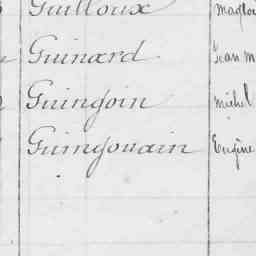 Guilloux Magloi
Guinard Jean M
Guingoin Michel
Guingouain Eugène